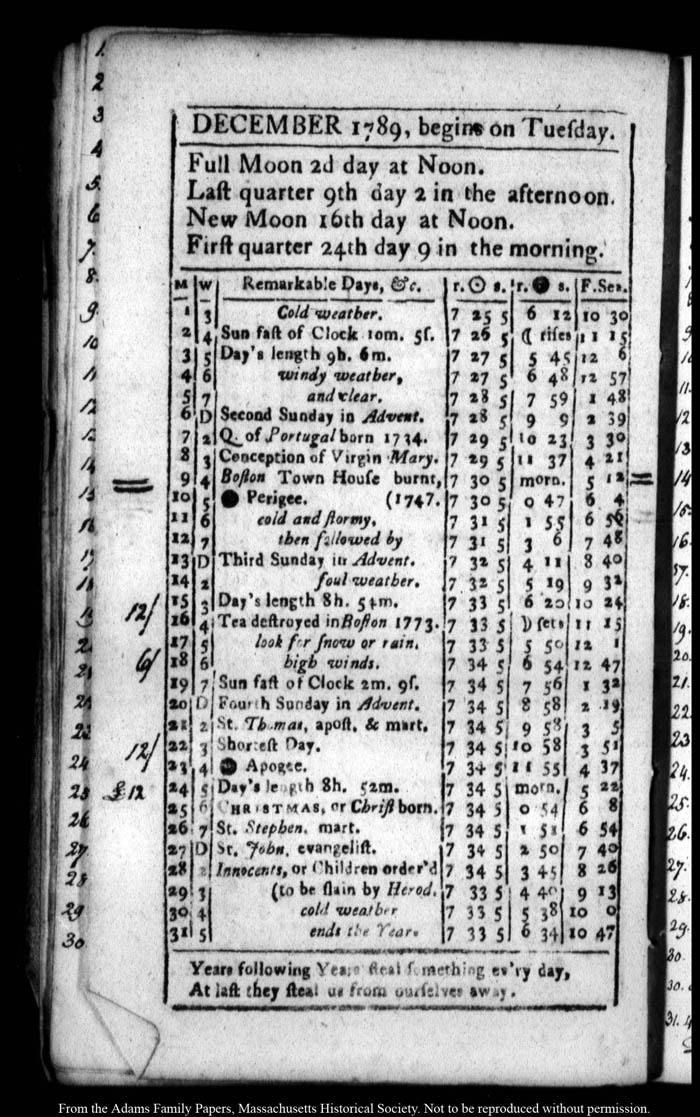 DECEMBER 1789, begins on Tueſday.
Full Moon 2d day at Noon.
Laſt quarter 9th day 2 in the afternoon.
New Moon 16th day at Noon.
Firſt quarter 24th day 9 in the morning.
M W Remarkable Days, &c. r. ☉ s. r. ● s. F.Sea.
1 3 Cold weather. 7 25 5 6 12 10 30
2 4 Sun faſt of Clock 10m. 5ſ. 7 26 5 ☾ riſes 11 15
3 5 Day's length 9h. 6m. 7 27 5 5 45 12 6
4 6 windy weather, 7 27 5 6 48 12 57
5 7 and clear. 7 28 5 7 59 1 48
6 D Second Sunday in Advent. 7 28 5 9 9 2 39
7 2 Q. of Portugal born 1734. 7 29 5 10 23 3 30
8 3 Conception of Virgin Mary. 7 29 5 11 37 4 21
9 4 Boſton Town Houſe burnt, 7 30 5 morn. 5 12
10 5 ● Perigee. (1747. 7 30 5 0 47 6 4
11 6 cold and ſtormy, 7 31 5 1 55 6 56
12 7 then followed by 7 31 5 3 6 7 48
13 D Third Sunday in Advent. 7 32 5 4 11 8 40
14 2 foul weather. 7 32 5 5 19 9 32
15 3 Day's length 8h. 54m. 7 33 5 6 20 10 24
16 4 Tea deſtroyed in Boſton 1773. 7 33 5 ☽ ſets 11 15
17 5 look for ſnow or rain, 7 33 5 5 50 12 1
18 6 high winds. 7 34 5 6 54 12 47
19 7 Sun faſt of Clock 2m. 9ſ. 7 34 5 7 56 1 32
20 D Fourth Sunday in Advent. 7 34 5 8 58 2 19
21 2 St. Thomas, apoſt. & mart. 7 34 5 9 58 3 5
22 3 Shorteſt Day. 7 34 5 10 58 3 51
23 4 ● Apogee. 7 34 5 11 55 4 37
24 5 Day's length 8h. 52m. 7 34 5 morn. 5 22
25 6 CHRISTMAS, or Chriſt born. 7 34 5 0 54 6 8
26 7 St. Stephen, mart. 7 34 5 1 51 6 54
27 D St. John, evangeliſt. 7 34 5 2 50 7 40
28 2 Innocents, or Children order'd 7 34 5 3 45 8 26
29 3 (to be ſlain by Herod. 7 33 5 4 40 9 13
30 4 cold weather 7 33 5 5 38 10 0
31 5 ends the Year. 7 33 5 6 34 10 47
Years following Years ſteal ſomething ev'ry day,
At laſt they ſteal us from ourſelves away.
12/
6/
12/
£12
From the Adams Family Papers, Massachusetts Historical Society. Not to be reproduced without permission.